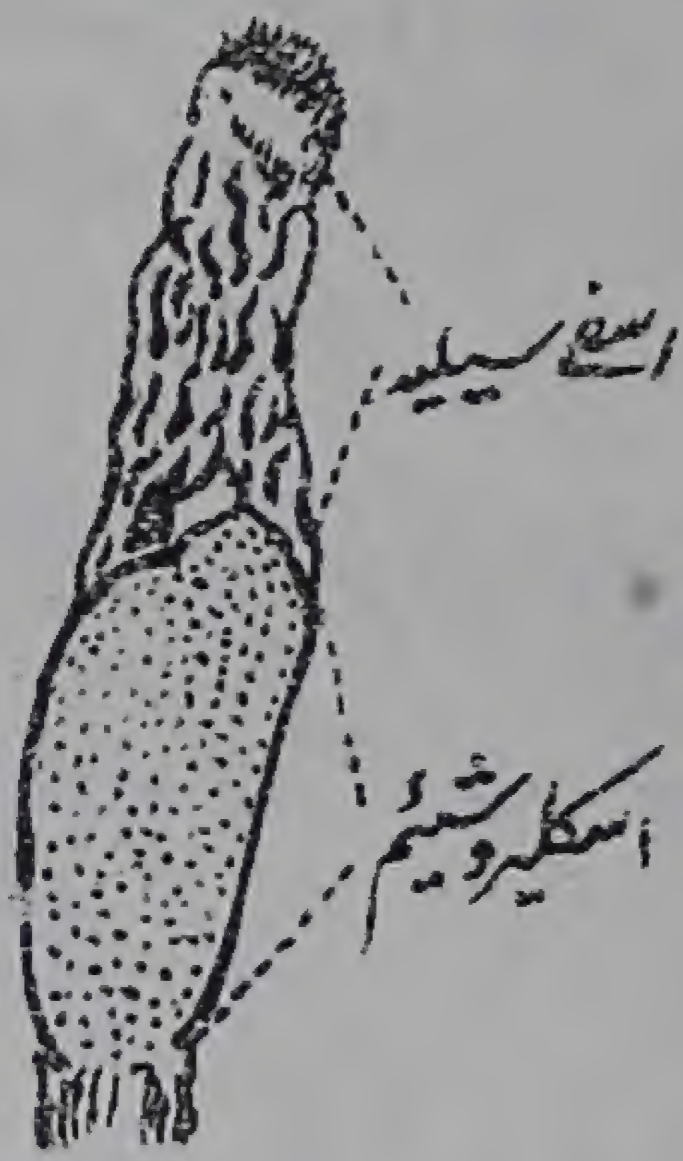 اسفے سیلیہ
اسکلیروشیئم